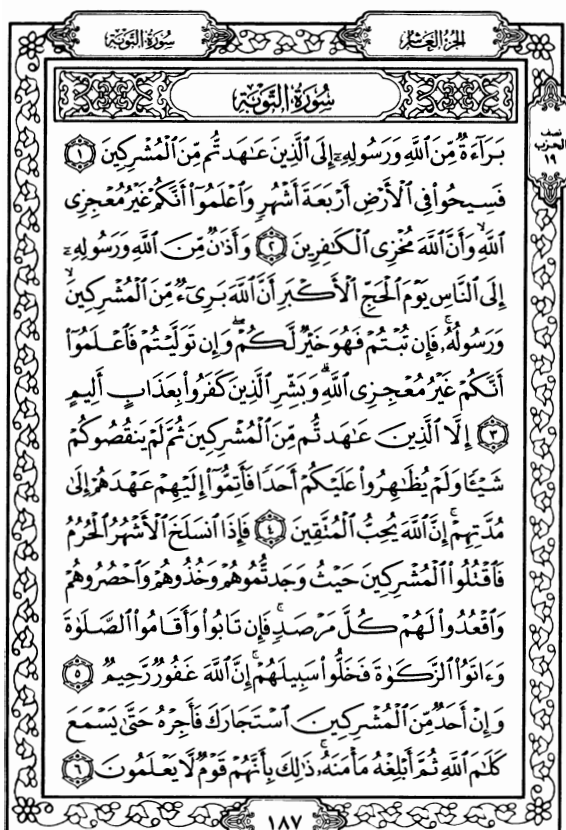 سُورَةُ التَّوۡبَةِ
الجُزءُ العَاشِرُ
نصف
الحزب
١٩
سُورَةُ التَّوۡبَةِ
بَرَآءَةٞ مِّنَ ٱللَّهِ وَرَسُولِهِۦٓ إِلَى ٱلَّذِينَ عَٰهَدتُّم مِّنَ ٱلۡمُشۡرِكِينَ ١
فَسِيحُواْ فِي ٱلۡأَرۡضِ أَرۡبَعَةَ أَشۡهُرٖ وَٱعۡلَمُوٓاْ أَنَّكُمۡ غَيۡرُ مُعۡجِزِي
ٱللَّهِ وَأَنَّ ٱللَّهَ مُخۡزِي ٱلۡكَٰفِرِينَ ٢ وَأَذَٰنٞ مِّنَ ٱللَّهِ وَرَسُولِهِۦٓ
إِلَى ٱلنَّاسِ يَوۡمَ ٱلۡحَجِّ ٱلۡأَكۡبَرِ أَنَّ ٱللَّهَ بَرِيٓءٞ مِّنَ ٱلۡمُشۡرِكِينَ
وَرَسُولُهُۥۚ فَإِن تُبۡتُمۡ فَهُوَ خَيۡرٞ لَّكُمۡۖ وَإِن تَوَلَّيۡتُمۡ فَٱعۡلَمُوٓاْ
أَنَّكُمۡ غَيۡرُ مُعۡجِزِي ٱللَّهِۗ وَبَشِّرِ ٱلَّذِينَ كَفَرُواْ بِعَذَابٍ أَلِيمٍ
٣ إِلَّا ٱلَّذِينَ عَٰهَدتُّم مِّنَ ٱلۡمُشۡرِكِينَ ثُمَّ لَمۡ يَنقُصُوكُمۡ
شَيۡـٔٗا وَلَمۡ يُظَٰهِرُواْ عَلَيۡكُمۡ أَحَدٗا فَأَتِمُّوٓاْ إِلَيۡهِمۡ عَهۡدَهُمۡ إِلَىٰ
مُدَّتِهِمۡۚ إِنَّ ٱللَّهَ يُحِبُّ ٱلۡمُتَّقِينَ ٤ فَإِذَا ٱنسَلَخَ ٱلۡأَشۡهُرُ ٱلۡحُرُمُ
فَٱقۡتُلُواْ ٱلۡمُشۡرِكِينَ حَيۡثُ وَجَدتُّمُوهُمۡ وَخُذُوهُمۡ وَٱحۡصُرُوهُمۡ
وَٱقۡعُدُواْ لَهُمۡ كُلَّ مَرۡصَدٖۚ فَإِن تَابُواْ وَأَقَامُواْ ٱلصَّلَوٰةَ
وَءَاتَوُاْ ٱلزَّكَوٰةَ فَخَلُّواْ سَبِيلَهُمۡۚ إِنَّ ٱللَّهَ غَفُورٞ رَّحِيمٞ ٥
وَإِنۡ أَحَدٞ مِّنَ ٱلۡمُشۡرِكِينَ ٱسۡتَجَارَكَ فَأَجِرۡهُ حَتَّىٰ يَسۡمَعَ
كَلَٰمَ ٱللَّهِ ثُمَّ أَبۡلِغۡهُ مَأۡمَنَهُۥۚ ذَٰلِكَ بِأَنَّهُمۡ قَوۡمٞ لَّا يَعۡلَمُونَ ٦
١٨٧